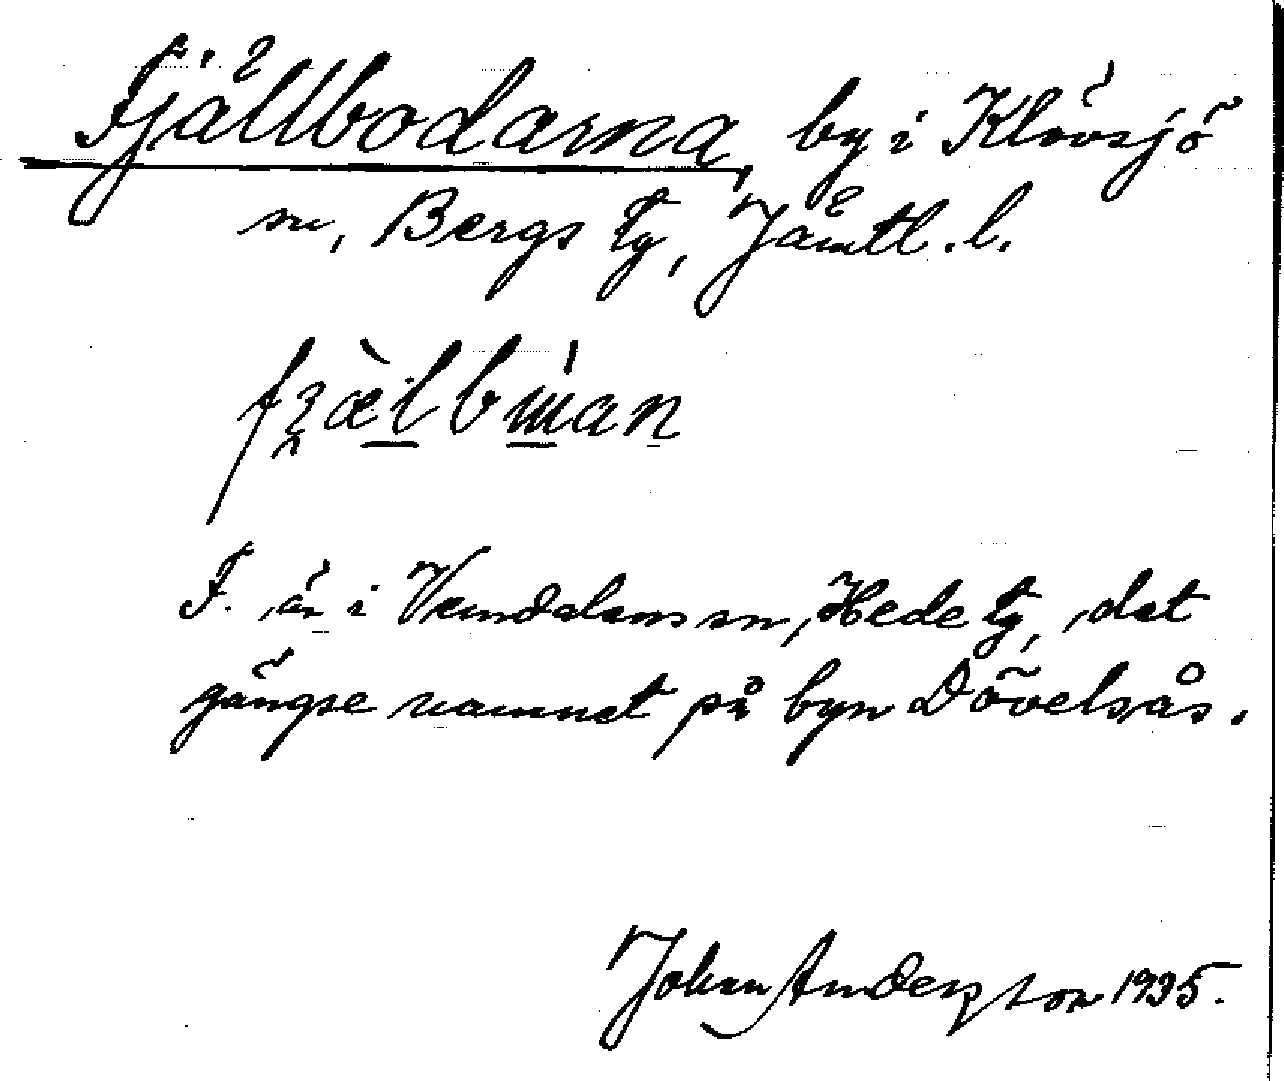 Fjällbodarna, by i Klövsjö
sn, Bergs tg, Jämtl. l.
F. är i Vemdalens sn, Hede tg, det
gängse namnet på byn Dövelsås.
Johan Anderzson 1935.